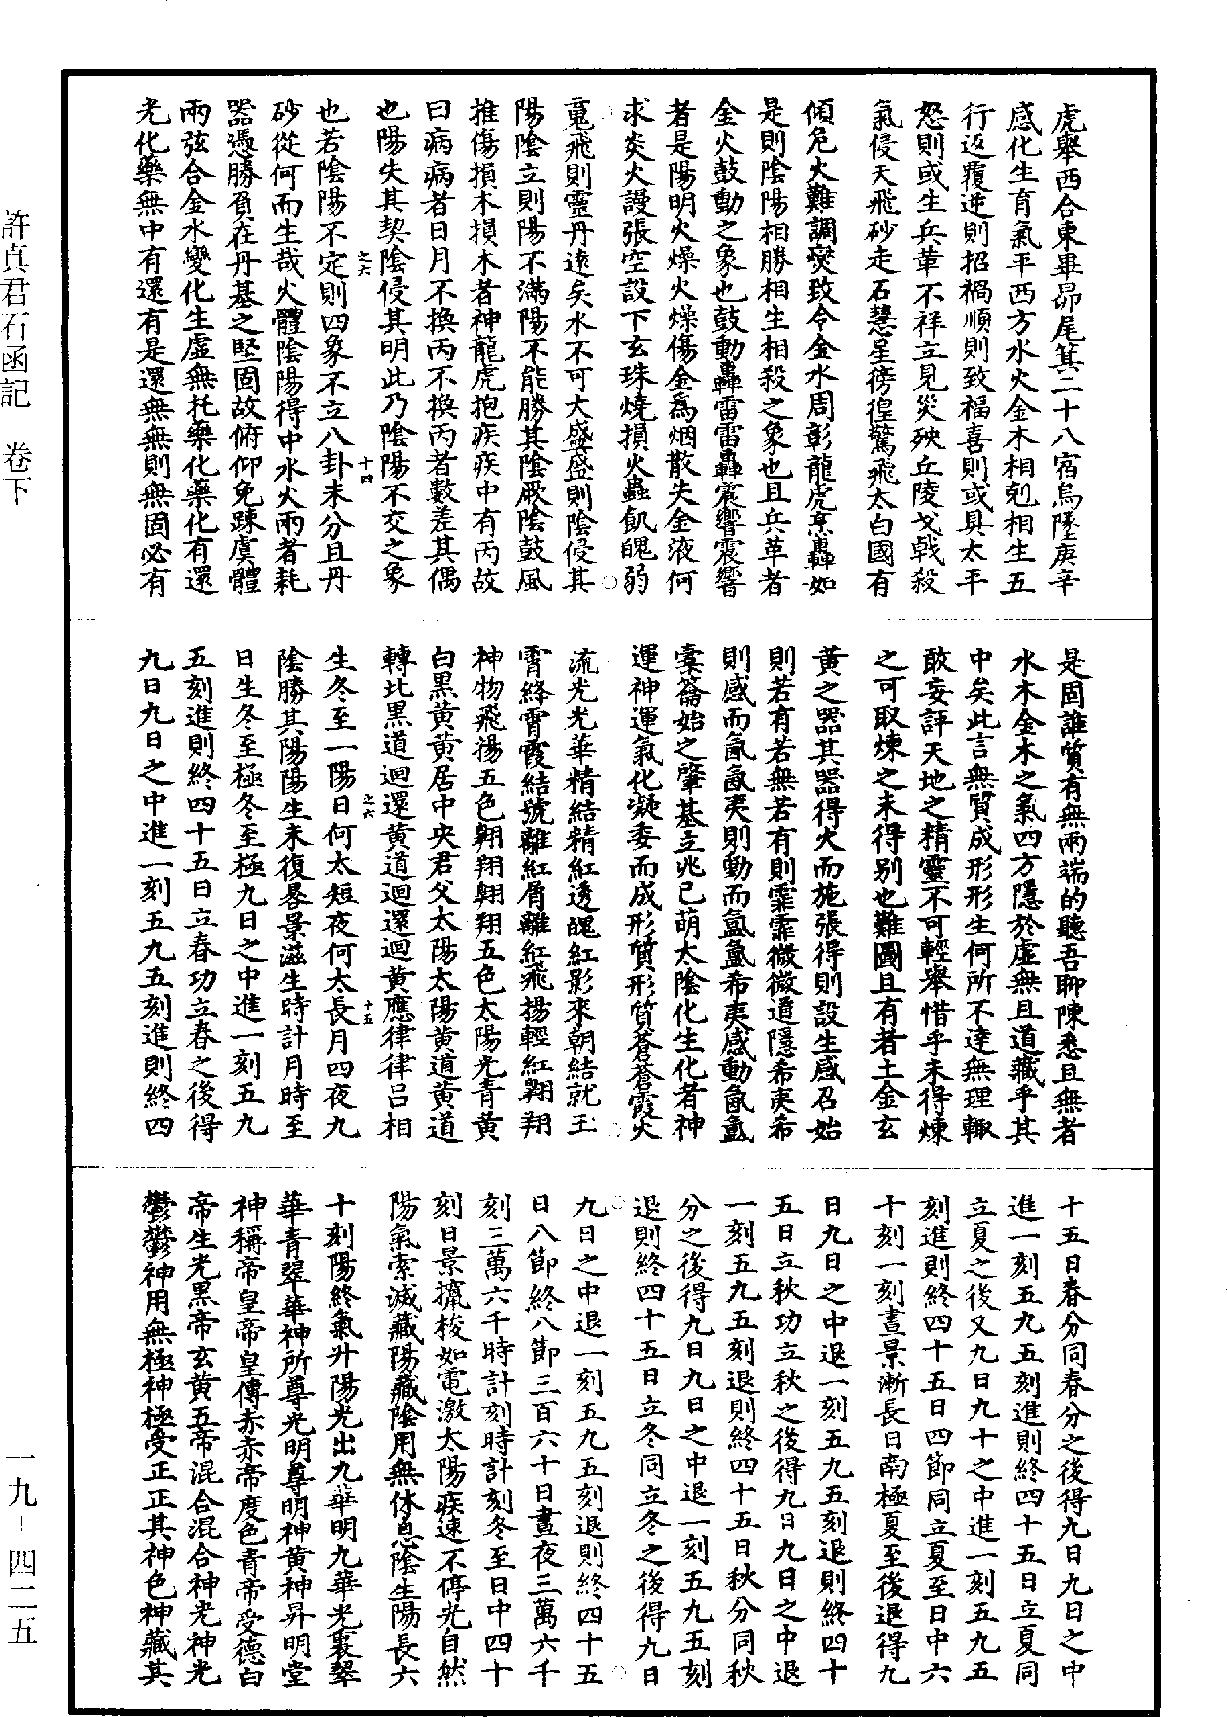 虎舉西合東畢昴尾箕二十八宿烏墜庚辛
感化生育氣平西方水火金木相剋相生五
行返覆逆則招禍順則致福喜則或具太平
怒則或生兵革不祥立見災殃丘陵戈戟殺
氣侵天飛砂走石慧星徬徨驚飛太白國有
傾危火難調爕致令金水周彰龍虎烹轟如
是則陰陽相勝相生相殺之象也且兵革者
金火鼓動之象也鼓動轟雷雷轟震響震響
者是陽明火燥火燥傷金為烟散失金液何
求炎火謾張空設下玄珠燒損火蟲飢魄弱
䰟飛則靈丹遠矣水不可大盛盛則陰侵其
陽陰立則陽不滿陽不能勝其陰厥陰鼓風
推傷損木損木者神龍虎抱疾疾中有丙故
曰病病者日月不換丙不換丙者數差其偶
也陽失其契陰侵其明此乃陰陽不交之象
之六
十四
也若陰陽不定則四象不立八卦未分且丹
砂從何而生哉火體陰陽得中水火兩者耗
器憑勝負在丹基之堅固故俯仰免踈虞體
兩弦合金水變化生虛無托藥化藥化有還
光化藥無中有還有是還無無則無固必有
是固誰質有無兩端的聽吾聊陳悉且無者
水木金木之氣四方隱於虛無且道藏乎其
中矣此言無質成形形生何所不達無理輙
敢妄評天地之精靈不可輕舉惜乎未得煉
之可取煉之未得别也難圖且有者土金玄
黄之器其器得火而施張得則設生感召始
則若有若無若有則霏霏微微道隱希夷希
則感而氤氤夷則動而氳氳希夷感動氤氳
橐籥始之肇基立兆已萌太陰化生化者神
運神運氣化凝委而成形質形質蒼蒼霞火
流光光華精結精紅透魄紅影來朝結就玉
霄絳霄霞結號離紅屑離紅飛揚輕紅翺翔
神物飛揚五色翺翔翺翔五色太陽光青黄
白黒黄黄居中央君父太陽太陽黄道黄道
轉北黒道迴還黄道迴還迴黄應律律吕相
之六
十五
生冬至一陽日何太短夜何太長月四夜九
陰勝其陽陽生未復晷景滋生時計月時至
日生冬至極冬至極九日之中進一刻五九
五刻進則終四十五日立春功立春之後得
九日九日之中進一刻五九五刻進則終四
十五日春分同春分之後得九日九日之中
進一刻五九五刻進則終四十五日立夏同
立夏之後又九日九十之中進一刻五九五
刻進則終四十五日四節同立夏至日中六
十刻一刻晝景漸長日南極夏至後退得九
日九日之中退一刻五九五刻退則終四十
五日立秋功立秋之後得九日九日之中退
一刻五九五刻退則終四十五日秋分同秋
分之後得九日九日之中退一刻五九五刻
退則終四十五日立冬同立冬之後得九日
九日之中退一刻五九五刻退則終四十五
日八節終八節三百六十日晝夜三萬六千
刻三萬六千時計刻時計刻冬至日中四十
刻日景攛梭如電激太陽疾速不停光自然
陽氣索滅藏陽藏陰用無休息陰生陽長六
十刻陽終氣升陽光出九華明九華光裏翠
華青翠華神所尊光明尊明神黄神昇明堂
神稱帝皇帝皇傳赤赤帝度色青帝受德白
帝生光黒帝玄黄五帝混合混合神光神光
鬱鬱神用無極神極受正正其神色神藏其
許真君石函記　卷下
一九-四二五